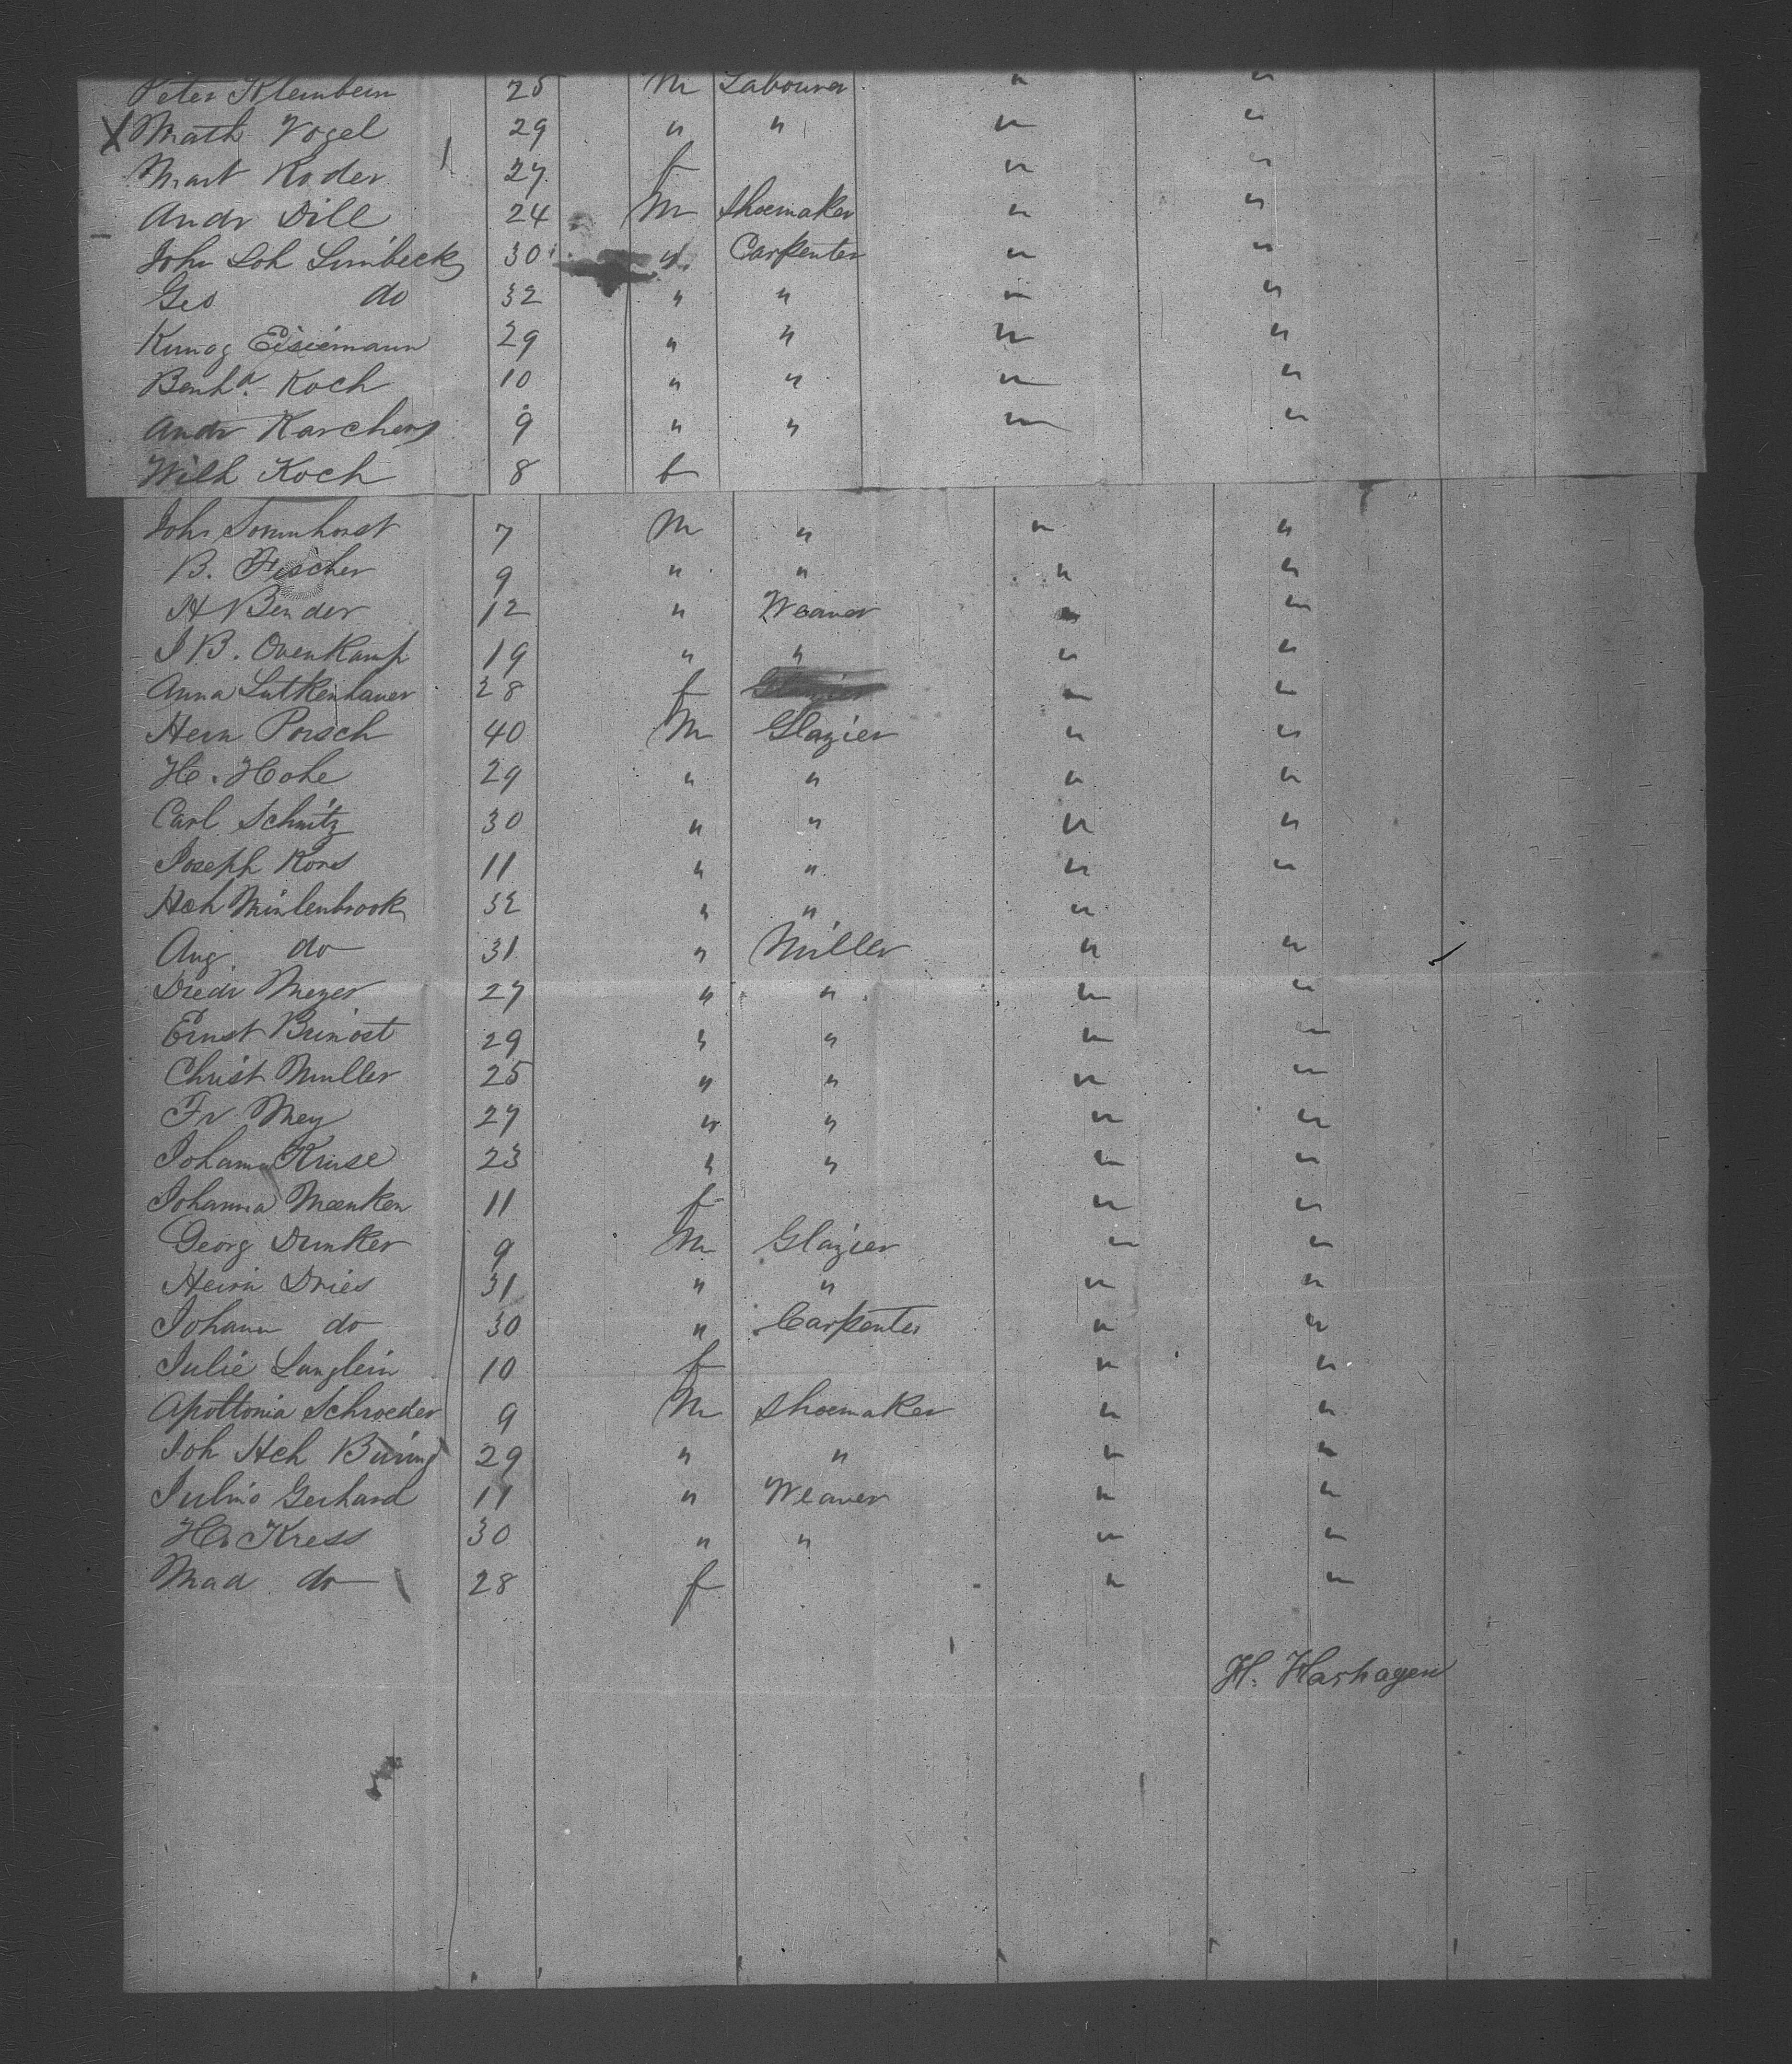 Peter Kleinbein 25 M Labourer " "
X Math Vogel 29 " " " "
Mart Roder 27 f " "
Andr Dill 24 M Shoemaker " "
John Loh Limbeck 30 " Carpenter " "
Geo do 32 " " " "
Kunog Eisiemann 29 " " " "
Benhd. Koch 10 " " " "
Andr Karchers 9 " " " "
Wilh Koch 8 f
Joh. Sommhorst 7 M " " "
B. Fischer 9 " " " "
H Bender 12 " Weaver " "
J B. Ovenkamp 19 " " " "
Anna Lutkenhauer 28 f " "
Hern Porsch 40 M Glazier " "
H. Hohe 29 " " " "
Carl Schmitz 30 " " " "
Joseph Kors 11 " " " "
Hch Minlenbrook 32 " " "
Aug. do 31 " Miller " "
Diedr Meyer 27 " " " "
Ernst Brinost 29 " " " "
Christ Muller 25 " " " "
Fr Mey 27 " " " "
Johann Kruse 23 " " " "
Johanna Maenken 11 f " "
Georg Dunker 9 M Glazier " "
Heirn Dries 31 " " " "
Johann do 30 " Carpenter " "
Julie Langlein 10 f " "
Apollonia Schroeder 9 M Shoemaker " "
Joh Hch Buring 29 " " " "
Julius Gerhard 11 " Weaver " "
H. Kress 30 " " " "
Mad do 28 f " "
H. Hashagen